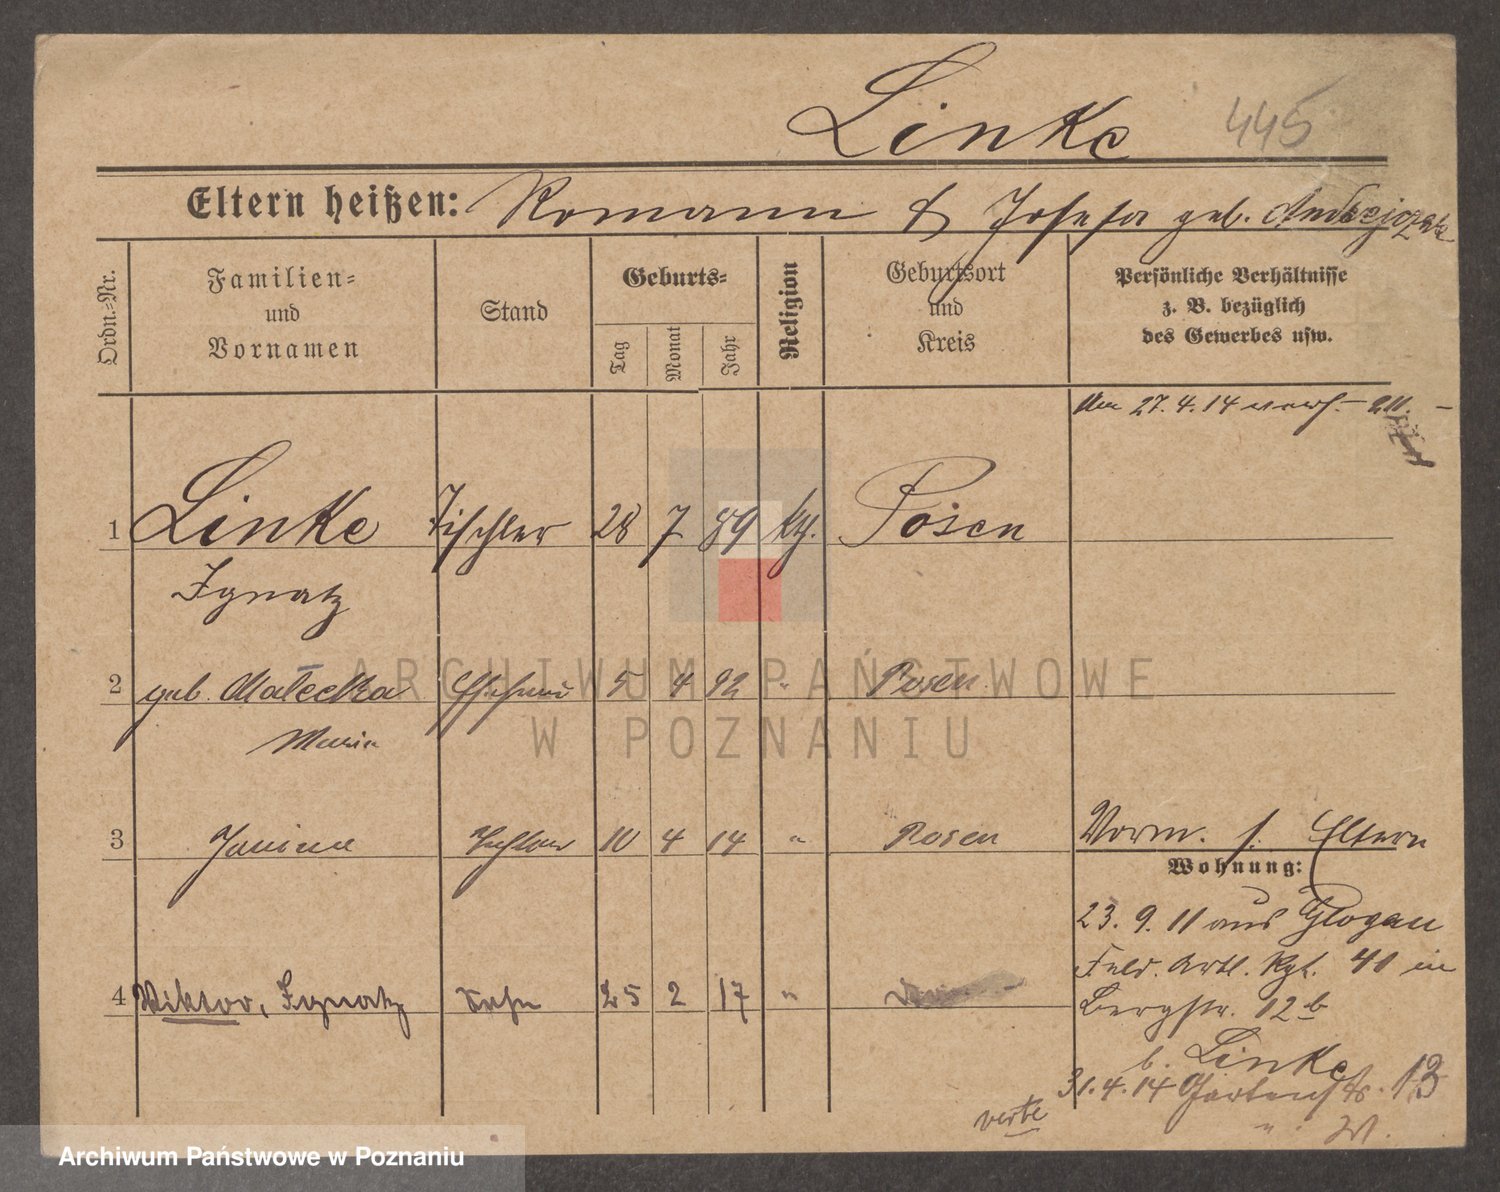 Linke 445
Eltern heißen: Romann & Josefa geb. Andrzejczak
Ordn.=Nr.
Familien=
und
Vornamen
Stand
Geburts=
Tag
Monat
Jahr
Religion
Geburtsort
und
Kreis
Persönliche Verhältnisse
z. B. bezüglich
des Gewerbes usw.
Am 27.4.14
1 Linke Tischler 28 7 89 kth. Posen
Ignatz
2 geb. Małecka Ehefrau 5 4 92 " Posen
Maria
3 Janina Tochter 10 4 14 " Posen
Vorm. s. Eltern
Wohnung:
23. 9. 11 aus Glogau
Feld. Artl. Rgt. 41 in
4 Viktor, Ignatz Sohn 25 2 17 "
Bergstr. 12 b
b. Linke
31.4.14 Gartenstr. 13
verte
ARCHIWUM PAŃSTWOWE
W POZNANIU
Archiwum Państwowe w Poznaniu